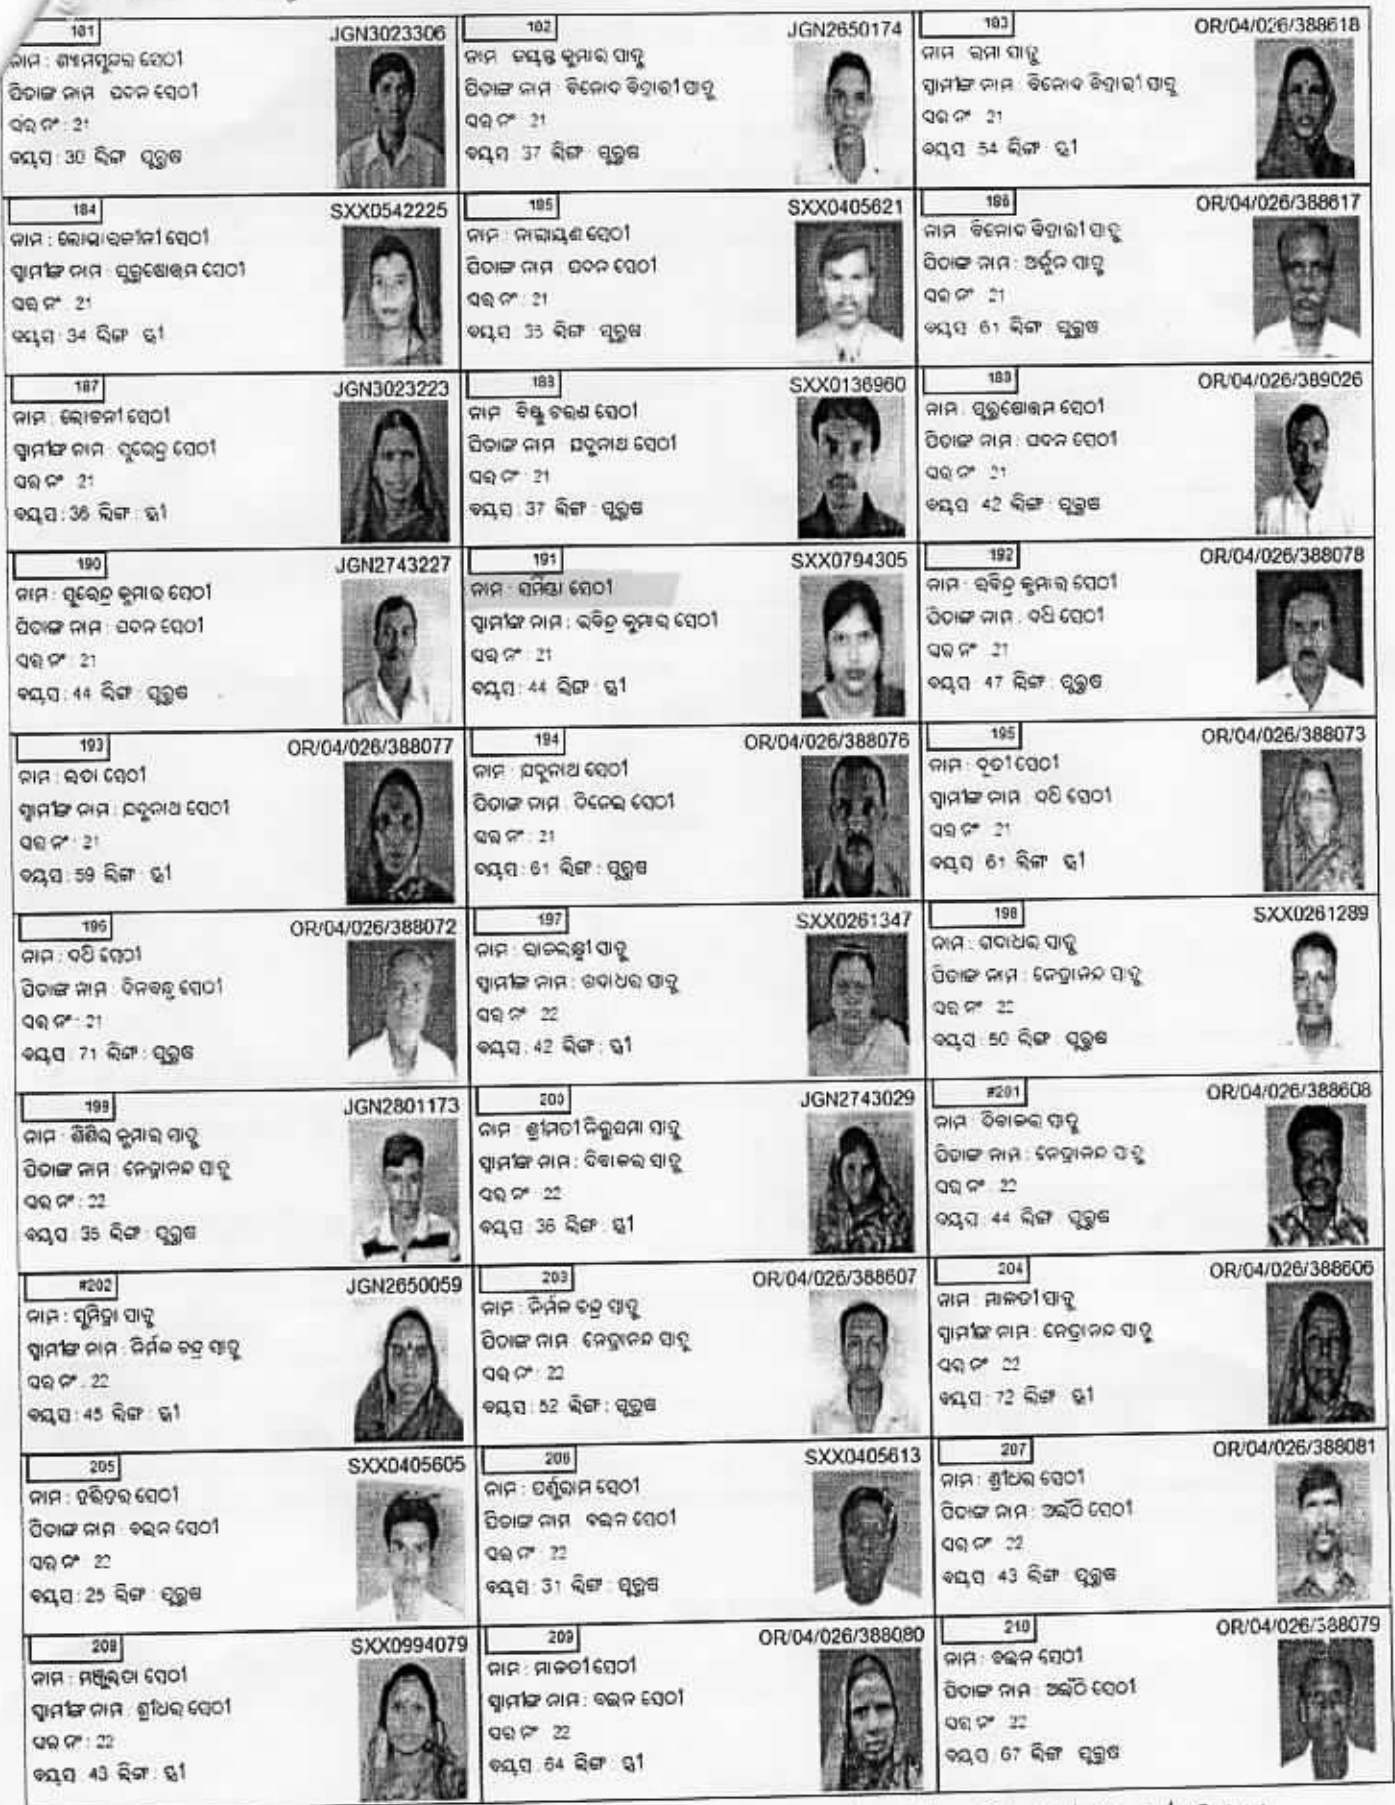 181 JGN3023306
ନାମ : ଶ୍ୟାମସୁନ୍ଦର ସେଠୀ
ପିତାଙ୍କ ନାମ ପଦନ ସେଠୀ
ଘର ନଂ : 21
ବୟସ : 30 ଲିଙ୍ଗ ପୁରୁଷ
182 JGN2650174
ନାମ ଜୟନ୍ତ କୁମାର ସାହୁ
ପିତାଙ୍କ ନାମ : ବିନୋଦ ବିହାରୀ ସାହୁ
ଘର ନଂ : 21
ବୟସ 37 ଲିଙ୍ଗ ପୁରୁଷ
183 OR/04/026/388618
ନାମ ରମା ସାହୁ
ସ୍ୱାମୀଙ୍କ ନାମ : ବିନୋଦ ବିହାରୀ ସାହୁ
ଘର ନଂ 21
ବୟସ 54 ଲିଙ୍ଗ ସ୍ତ୍ରୀ
184 SXX0542225
ନାମ : ସେଠୀ
ସ୍ୱାମୀଙ୍କ ନାମ : ପୁରୁଷୋତ୍ତମ ସେଠୀ
ଘର ନଂ : 21
ବୟସ : 34 ଲିଙ୍ଗ ସ୍ତ୍ରୀ
185 SXX0405621
ନାମ : ନାରାୟଣ ସେଠୀ
ପିତାଙ୍କ ନାମ : ପଦନ ସେଠୀ
ଘର ନଂ : 21
ବୟସ : 35 ଲିଙ୍ଗ : ପୁରୁଷ
186 OR/04/026/388617
ନାମ : ବିନୋଦ ବିହାରୀ ସାହୁ
ପିତାଙ୍କ ନାମ : ଅର୍ଜୁନ ସାହୁ
ଘର ନଂ 21
ବୟସ 61 ଲିଙ୍ଗ ପୁରୁଷ
187 JGN3023223
ନାମ : ଲୋଚନୀ ସେଠୀ
ସ୍ୱାମୀଙ୍କ ନାମ : ସୁରେନ୍ଦ୍ର ସେଠୀ
ଘର ନଂ 21
ବୟସ : 36 ଲିଙ୍ଗ : ସ୍ତ୍ରୀ
188 SXX0136960
ନାମ ବିଷ୍ଣୁ ଚରଣ ସେଠୀ
ପିତାଙ୍କ ନାମ ଯଦୁନାଥ ସେଠୀ
ଘର ନଂ : 21
ବୟସ : 37 ଲିଙ୍ଗ : ପୁରୁଷ
189 OR/04/026/389026
ନାମ : ପୁରୁଷୋତ୍ତମ ସେଠୀ
ପିତାଙ୍କ ନାମ : ପଦନ ସେଠୀ
ଘର ନଂ 21
ବୟସ 42 ଲିଙ୍ଗ : ପୁରୁଷ
190 JGN2743227
ନାମ : ସୁରେନ୍ଦ୍ର କୁମାର ସେଠୀ
ପିତାଙ୍କ ନାମ : ପଦନ ସେଠୀ
ଘର ନଂ : 21
ବୟସ : 44 ଲିଙ୍ଗ : ପୁରୁଷ
191 SXX0794305
ନାମ : ସେଠୀ
ସ୍ୱାମୀଙ୍କ ନାମ : ରବିନ୍ଦ୍ର କୁମାର ସେଠୀ
ଘର ନଂ : 21
ବୟସ : 44 ଲିଙ୍ଗ : ସ୍ତ୍ରୀ
192 OR/04/026/388078
ନାମ : ରବିନ୍ଦ୍ର କୁମାର ସେଠୀ
ପିତାଙ୍କ ନାମ : ଦଧି ସେଠୀ
ଘର ନଂ 21
ବୟସ : 47 ଲିଙ୍ଗ : ପୁରୁଷ
193 OR/04/026/388077
ନାମ : ଲତା ସେଠୀ
ସ୍ୱାମୀଙ୍କ ନାମ : ଯଦୁନାଥ ସେଠୀ
ଘର ନଂ : 21
ବୟସ : 59 ଲିଙ୍ଗ : ସ୍ତ୍ରୀ
194 OR/04/026/388076
ନାମ : ଯଦୁନାଥ ସେଠୀ
ପିତାଙ୍କ ନାମ : ସେଠୀ
ଘର ନଂ : 21
ବୟସ : 61 ଲିଙ୍ଗ : ପୁରୁଷ
195 OR/04/026/388073
ନାମ : ଦୂତୀ ସେଠୀ
ସ୍ୱାମୀଙ୍କ ନାମ : ଦଧି ସେଠୀ
ଘର ନଂ 21
ବୟସ 61 ଲିଙ୍ଗ ସ୍ତ୍ରୀ
196 OR/04/026/388072
ନାମ : ଦଧି ସେଠୀ
ପିତାଙ୍କ ନାମ : ଦିନବନ୍ଧୁ ସେଠୀ
ଘର ନଂ : 21
ବୟସ : 71 ଲିଙ୍ଗ : ପୁରୁଷ
197 SXX0261347
ନାମ : ସାହୁ
ସ୍ୱାମୀଙ୍କ ନାମ : ଗଦାଧର ସାହୁ
ଘର ନଂ 22
ବୟସ : 42 ଲିଙ୍ଗ : ସ୍ତ୍ରୀ
198 SXX0261289
ନାମ : ଗଦାଧର ସାହୁ
ପିତାଙ୍କ ନାମ : ନେତ୍ରାନନ୍ଦ ସାହୁ
ଘର ନଂ 22
ବୟସ : 50 ଲିଙ୍ଗ : ପୁରୁଷ
199 JGN2801173
ନାମ : ଶିଶିର କୁମାର ସାହୁ
ପିତାଙ୍କ ନାମ : ନେତ୍ରାନନ୍ଦ ସାହୁ
ଘର ନଂ : 22
ବୟସ : 35 ଲିଙ୍ଗ : ପୁରୁଷ
200 JGN2743029
ନାମ : ଶ୍ରୀମତୀ ନିରୁପମା ସାହୁ
ସ୍ୱାମୀଙ୍କ ନାମ : ଦିବାକର ସାହୁ
ଘର ନଂ 22
ବୟସ : 36 ଲିଙ୍ଗ : ସ୍ତ୍ରୀ
#201 OR/04/026/388608
ନାମ : ଦିବାକର ସାହୁ
ପିତାଙ୍କ ନାମ : ନେତ୍ରାନନ୍ଦ ସାହୁ
ଘର ନଂ : 22
ବୟସ : 44 ଲିଙ୍ଗ : ପୁରୁଷ
#202 JGN2650059
ନାମ : ସୁମିତ୍ରା ସାହୁ
ସ୍ୱାମୀଙ୍କ ନାମ : ନିର୍ମଳ ଚନ୍ଦ୍ର ସାହୁ
ଘର ନଂ : 22
ବୟସ : 45 ଲିଙ୍ଗ : ସ୍ତ୍ରୀ
203 OR/04/026/388607
ନାମ : ନିର୍ମଳ ଚନ୍ଦ୍ର ସାହୁ
ପିତାଙ୍କ ନାମ : ନେତ୍ରାନନ୍ଦ ସାହୁ
ଘର ନଂ : 22
ବୟସ : 52 ଲିଙ୍ଗ : ପୁରୁଷ
204 OR/04/026/388606
ନାମ : ମାଳତୀ ସାହୁ
ସ୍ୱାମୀଙ୍କ ନାମ : ନେତ୍ରାନନ୍ଦ ସାହୁ
ଘର ନଂ 22
ବୟସ : 72 ଲିଙ୍ଗ ସ୍ତ୍ରୀ
205 SXX0405605
ନାମ : ହରିହର ସେଠୀ
ପିତାଙ୍କ ନାମ : ବଇନ ସେଠୀ
ଘର ନଂ 22
ବୟସ : 25 ଲିଙ୍ଗ : ପୁରୁଷ
206 SXX0405613
ନାମ : ପର୍ଶୁରାମ ସେଠୀ
ପିତାଙ୍କ ନାମ ବଇନ ସେଠୀ
ଘର ନଂ 22
ବୟସ : 31 ଲିଙ୍ଗ : ପୁରୁଷ
207 OR/04/026/388081
ନାମ : ଶ୍ରୀଧର ସେଠୀ
ପିତାଙ୍କ ନାମ : ଅଇଁଠି ସେଠୀ
ଘର ନଂ 22
ବୟସ : 43 ଲିଙ୍ଗ ପୁରୁଷ
208 SXX0994079
ନାମ : ମଞ୍ଜୁଲତା ସେଠୀ
ସ୍ୱାମୀଙ୍କ ନାମ : ଶ୍ରୀଧର ସେଠୀ
ଘର ନଂ : 22
ବୟସ : 43 ଲିଙ୍ଗ : ସ୍ତ୍ରୀ
209 OR/04/026/388080
ନାମ : ମାଳତୀ ସେଠୀ
ସ୍ୱାମୀଙ୍କ ନାମ : ବଇନ ସେଠୀ
ଘର ନଂ 22
ବୟସ : 64 ଲିଙ୍ଗ : ସ୍ତ୍ରୀ
210 OR/04/026/388079
ନାମ : ବଇନ ସେଠୀ
ପିତାଙ୍କ ନାମ : ଅଇଁଠି ସେଠୀ
ଘର ନଂ 22
ବୟସ : 67 ଲିଙ୍ଗ ପୁରୁଷ